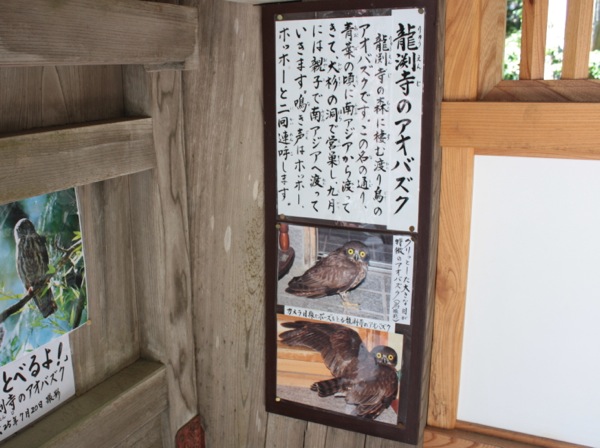 龍渕寺のアオバズク
りゅうえんじ
龍渕寺の森に棲む渡り鳥の
アオバズクです。この名の通り、
青葉の頃に南アジアから渡って
きて、大杉の洞で営巣し、九月
には親子で南アジアへ渡って
いきます。鳴き声はホッホー、
ホッホーと二回連呼します。
クリッとした大きな目が
特徴のアオバズク
カメラ目線でポーズをとる龍渕寺のアオバズク
とべるよ!
寺のアオバズク
25年7月20日 撮影